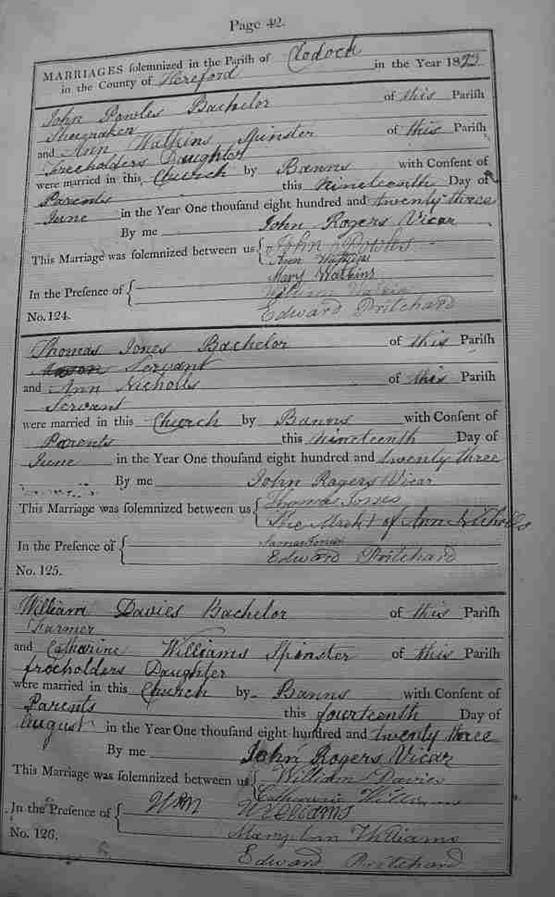 Page 42.
MARRIAGES solemnized in the Parish of Clodock
in the County of Hereford in the Year 1823
John Powles Bachelor of this Parish
Shoemaker
and Ann Watkins Spinster of this Parish
Freeholders Daughter
were married in this Church by Banns with Consent of
Parents this nineteenth Day of
June in the Year One thousand eight hundred and twenty three
By me John Rogers Vicar
This Marriage was solemnized between us { John Powles
Ann Watkins
Mary Watkins
In the Presence of {
Edward Pritchard
No. 124.
Thomas Jones Bachelor of this Parish
Servant
and Ann Nicholls of this Parish
Servant
were married in this Church by Banns with Consent of
Parents this nineteenth Day of
June in the Year One thousand eight hundred and twenty three
By me John Rogers Vicar
This Marriage was solemnized between us { Thomas Jones
The Mark of Ann Nicholls
In the Presence of { James Jones
Edward Pritchard
No. 125.
William Davies Bachelor of this Parish
Farmer
and Catharine Williams Spinster of this Parish
freeholders Daughter
were married in this Church by Banns with Consent of
Parents this fourteenth Day of
August in the Year One thousand eight hundred and twenty three
By me John Rogers Vicar
This Marriage was solemnized between us { William Davies
Catharine Williams
In the Presence of { Wm Williams
No. 126. Mary Ann Williams
Edward Pritchard